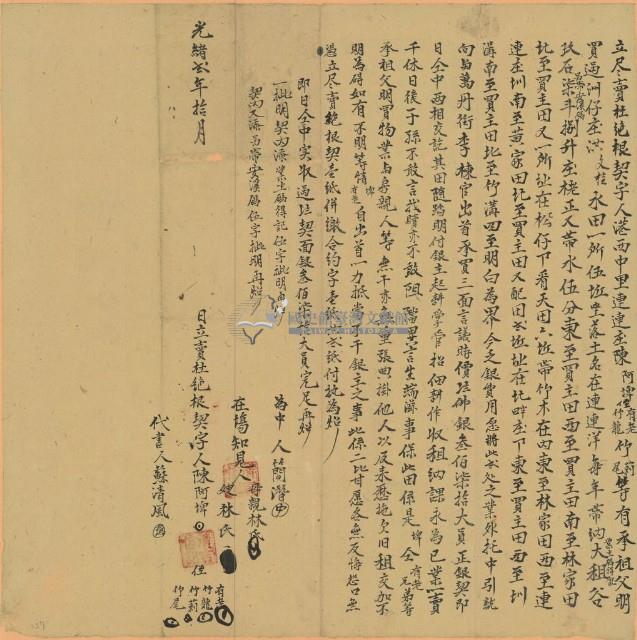 立尽賣杜絕根契字人港西中里連連庄陳阿埤侄有老竹龍竹莿竹尾等有承祖父明
買過洲仔庄洪文桂水田一所伍坵坐落土名在連連洋每年帶納大租谷
玖石柒斗捌升庄栳正又帶水伍分東至買主田西至買主田南至林家田
北至買主田又一所址在松仔下看天田六坵帶竹木在內東至林家田西至連
連圳南至黃家田北至買主田又配田弍坵址在北畔庄下東至買主田西至圳
溝南至買主田北至竹溝四至明白為界今乏銀費用愿將此弍處之業除托中引就
向與萬丹街李棟官出首承買三面言議時價佛銀叁佰柒拾大員正銀契即
日仝中両相交訖其田隨踏明付銀主起耕掌管招佃耕作收租納課永為己業一賣
千休日後子孫不敢言找贖亦不敢阻異言生端滋事保此田係是埤仝有老兄弟等
承祖父明買物業與房親人等無干亦無重張典掛他人以及來歷拖欠旧租交加不
明為碍如有不明等情埤有老自出首一力抵當不干銀主之事此係二比甘愿各無反悔恐口無
憑立尽賣絕根契壹紙併繳合約字壹紙付執為炤
即日仝中實收過契面銀叁佰柒拾大員完足再炤
一批明契內添業主碼得記伍字批明再炤
契內又添另帶安溪碼伍字批明再炤
為中人簡潛
母親林氏
在塲知見人
嫂林氏
光緒弍年拾月 日立賣杜絕根契字人陳阿埤
侄有老竹龍竹莿竹尾
代書人蘇清風
國史館臺灣文獻館
TAIWAN HISTORICA